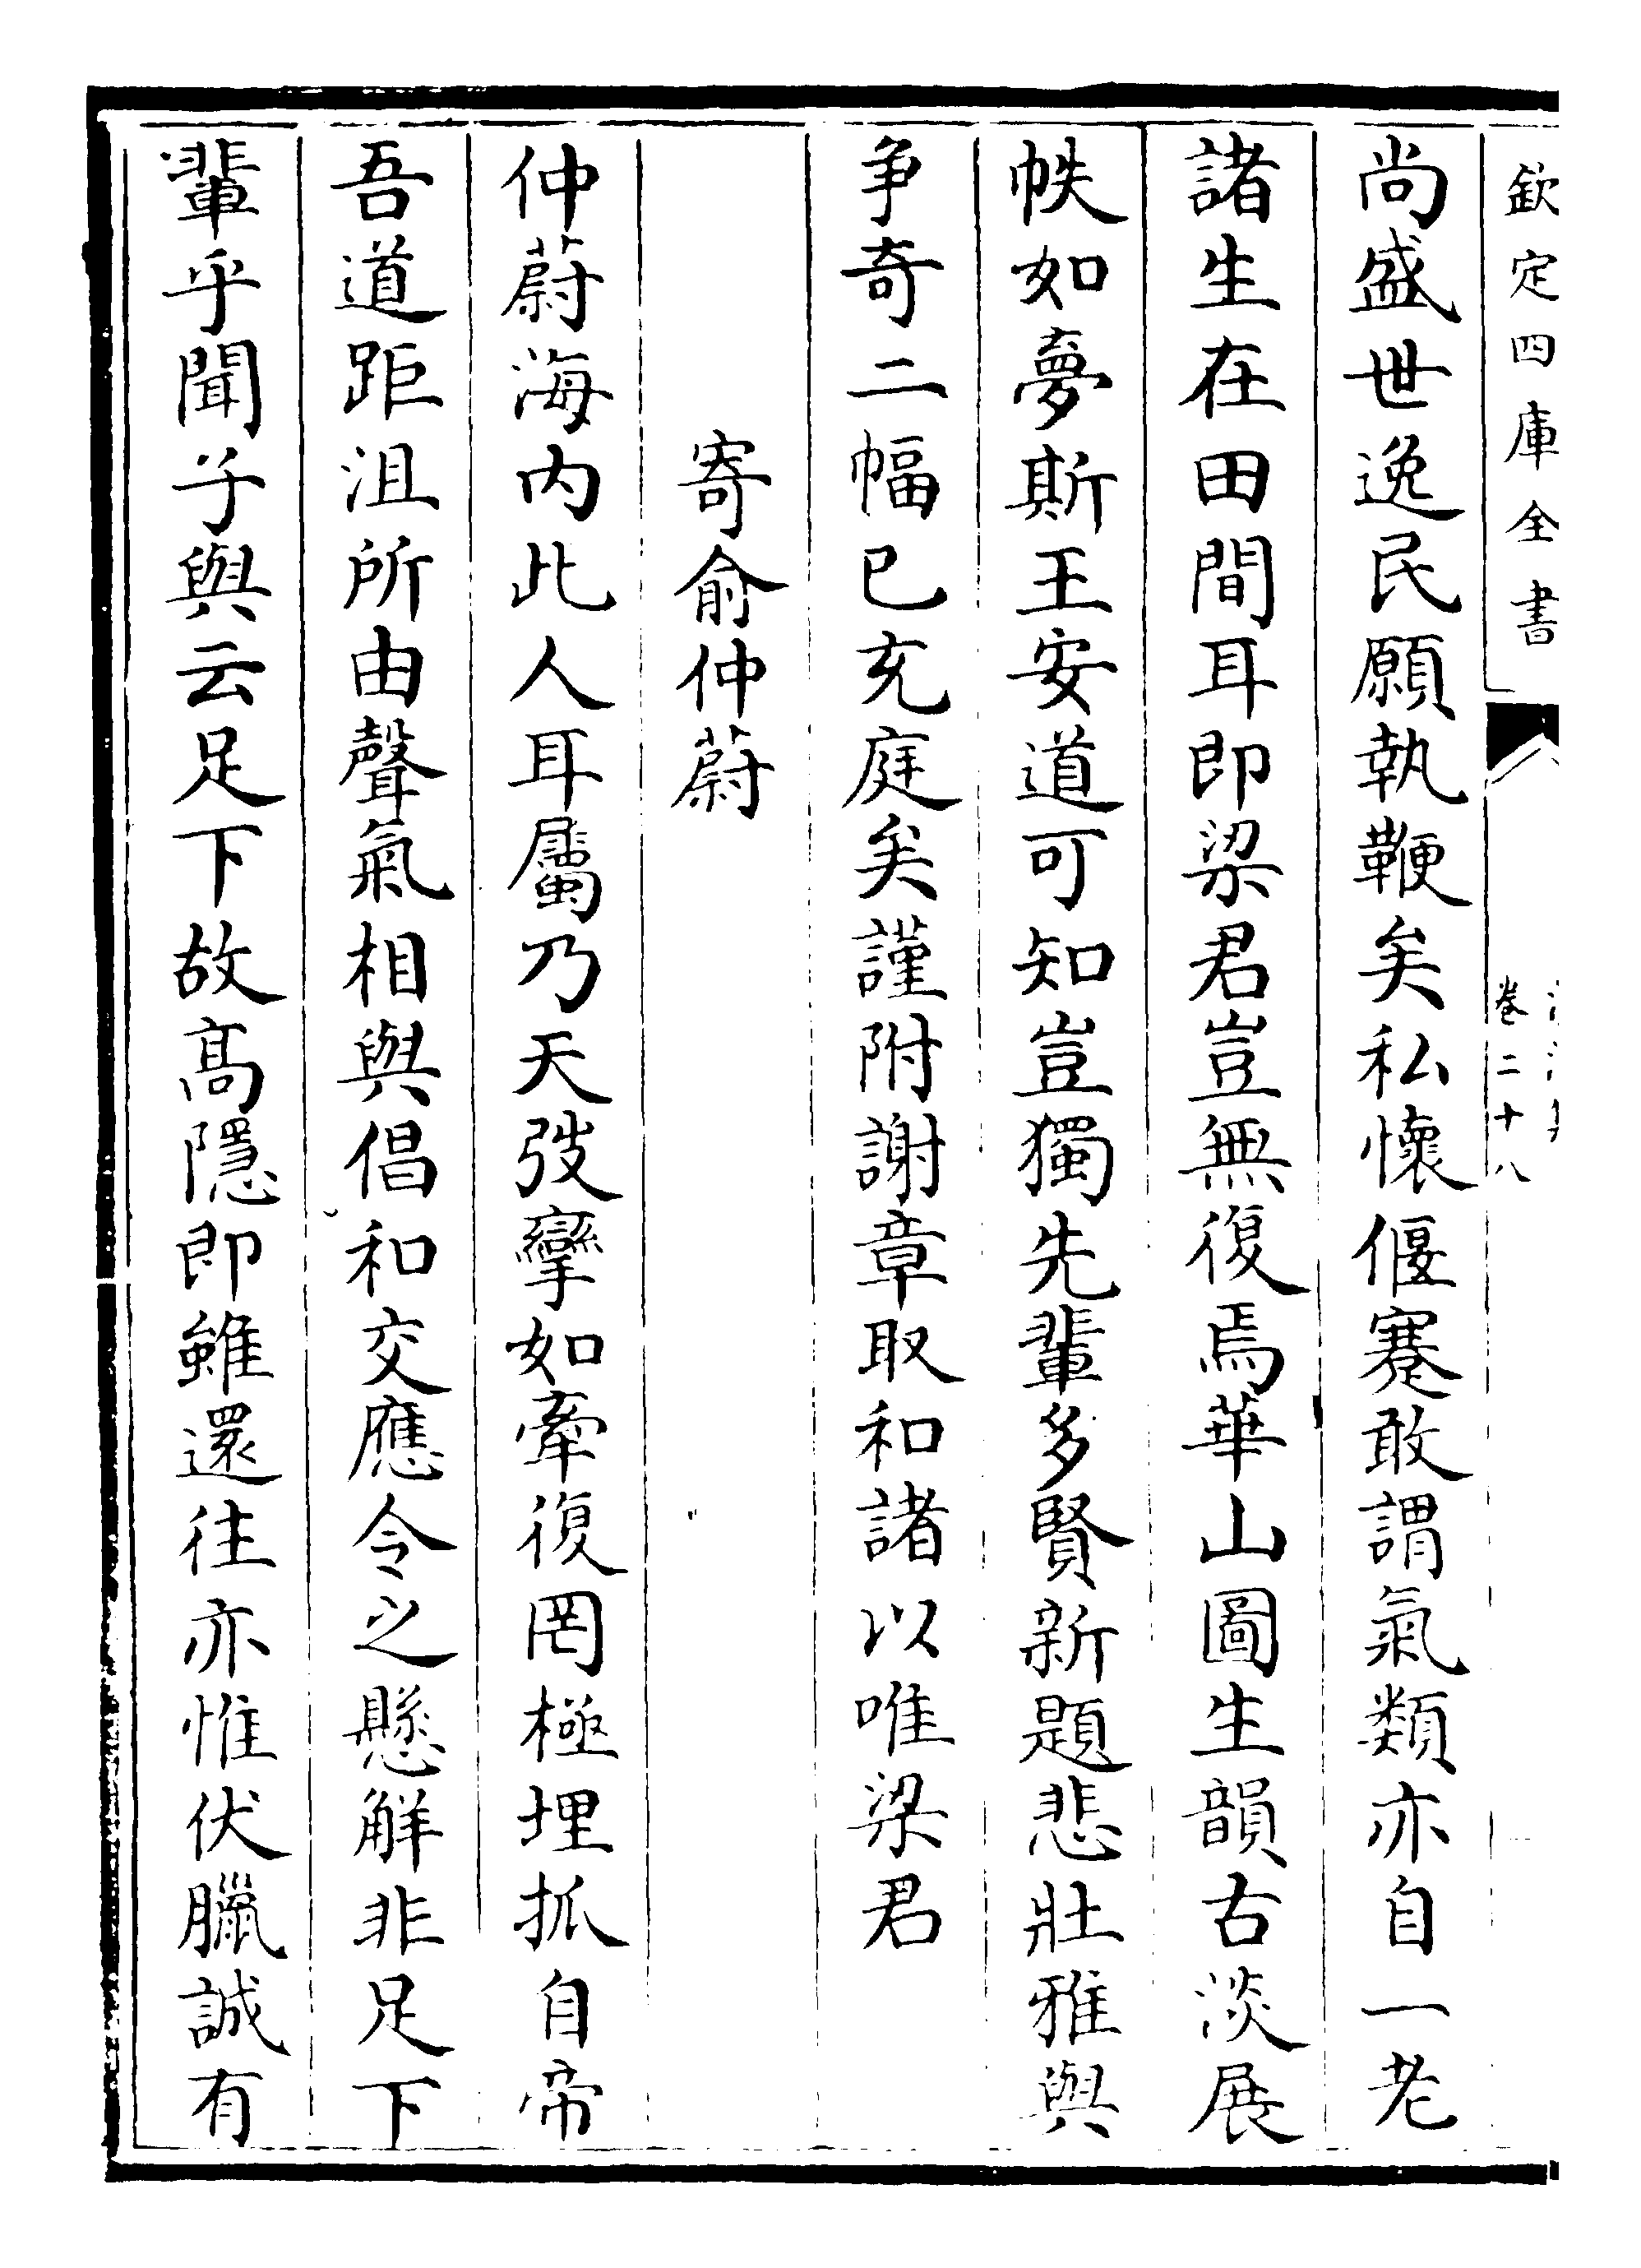 欽定四庫全書
卷二十八
尚盛世逸民願執鞭矣私懷偃蹇敢謂氣類亦自一老
諸生在田間耳即梁君豈無復焉華山圖生韻古淡展
帙如夢斯王安道可知豈獨先輩多賢新題悲壯雅與
争奇二幅已充庭矣謹附謝章取和諸以唯梁君
寄俞仲蔚
仲蔚海内此人耳屬乃天弢孿如牽復罔極埋抓自帝
吾道距沮所由聲氣相與倡和交應令之懸解非足下
輩乎聞子與云足下故髙隱即雖還往亦惟伏臘誠有